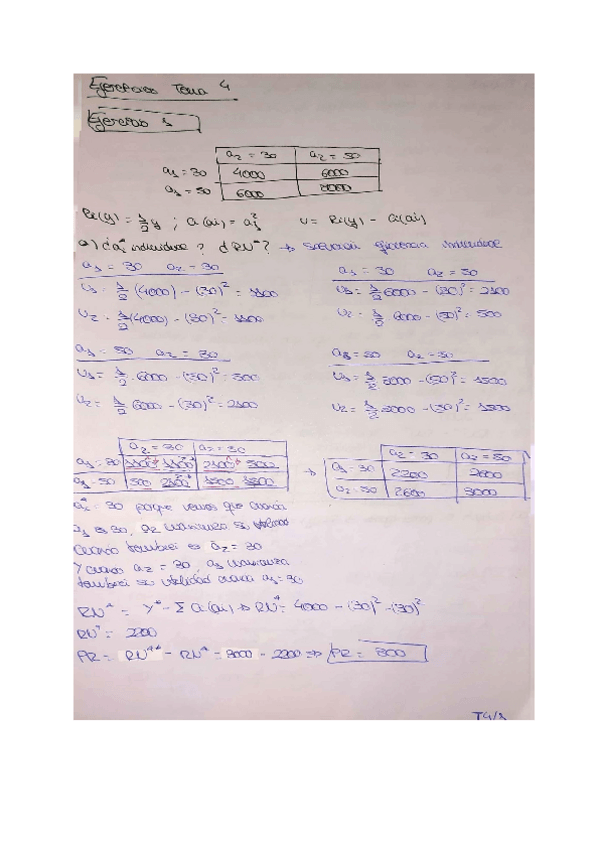 Ejercicios Tema 4
Ejercicio 1
a₂ = 30 a₂ = 50
a₁ = 30 4000 6000
a₁ = 50 6000 8000
Ri(y) = 1/2 y ; Ci(ai) = ai² U = Ri(y) - Ci(ai)
a) ¿a* individual? ¿RN*? → solución eficiencia individual
a₁ = 30 a₂ = 30
U₁ = 1/2 (4000) - (30)² = 1100
U₂ = 1/2 (4000) - (30)² = 1100
a₁ = 30 a₂ = 50
U₁ = 1/2 6000 - (30)² = 2100
U₂ = 1/2 6000 - (50)² = 500
a₁ = 50 a₂ = 30
U₁ = 1/2 · 6000 - (50)² = 500
U₂ = 1/2 6000 - (30)² = 2100
a₁ = 50 a₂ = 50
U₁ = 1/2 8000 - (50)² = 1500
U₂ = 1/2 8000 - (50)² = 1500
a₂ = 30 a₂ = 50
a₁ = 30 1100* 1100* 2100* 500
a₁ = 50 500 2100* 1500 1500
→
a₂ = 30 a₂ = 50
a₁ = 30 2200 2600
a₂ = 50 2600 3000
a* = 30 porque vemos que cuando
a₁ es 30, a₂ maximiza su utilidad
cuando también es a₂ = 30
Y cuando a₂ = 30, a₁ maximiza
también su utilidad cuando a₁ = 30
RN* = Y* - Σ Ci(ai) → RN* = 4000 - (30)² - (30)²
RN* = 2200
PR = RN** - RN* = 3000 - 2200 ⇒ PR = 800
T4/1